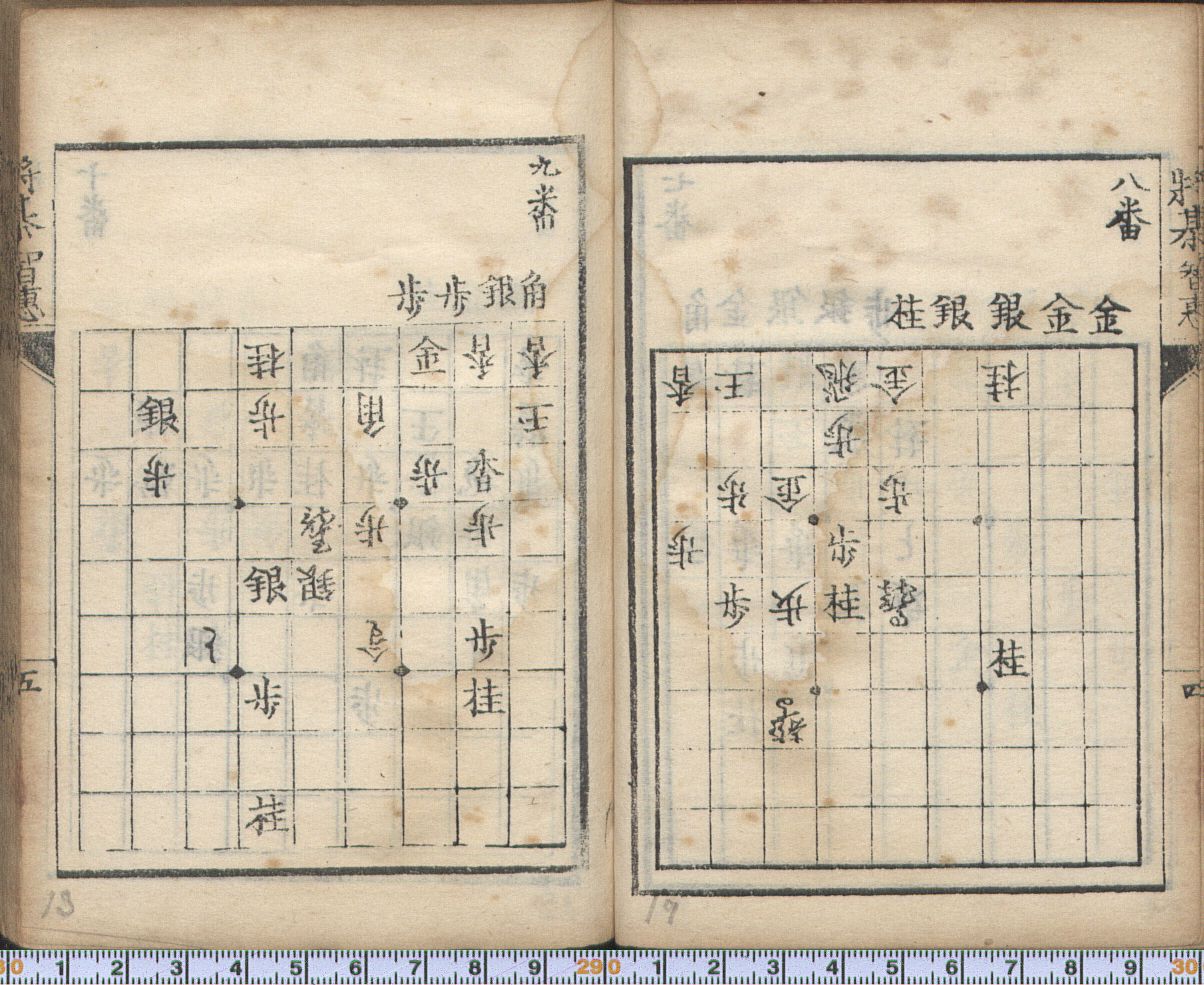 将棊智恵
四
八番
金金銀銀桂
桂金飛王香
歩
歩金歩
歩歩
桂歩歩
桂
17
九番
角銀歩歩
香香金桂
王角歩銀
香歩歩
歩歩
銀銀
歩
桂歩
桂
将棊智恵
五
13
30 1 2 3 4 5 6 7 8 9 290 1 2 3 4 5 6 7 8 9 30